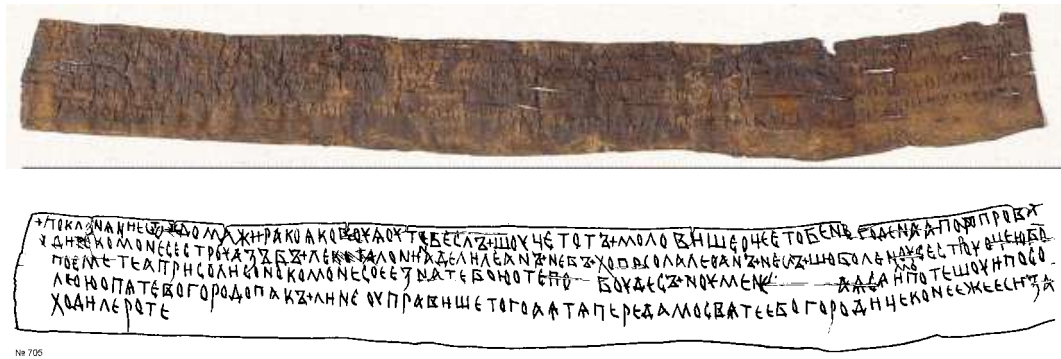 +покланѧниеѿдомажиракоѧковоуѧоутебеслъішоучетотъімоловишеочеетобенегоденаапопрова
дикомонесестроуѧзъбъілелонинаделилеанъінебъіхопосолалеанъінеслъішоболеноусестроуоцеюбо
поеметеаприсолисонокомонесоеезнатебоиотепобоудесъіноумене аѧсѧипотешоуипосо
лоюопатевогородопакъілинеоуправишетогоаѧтапередамосватеебогородицеконеежеесиза
ходилероте
№ 705